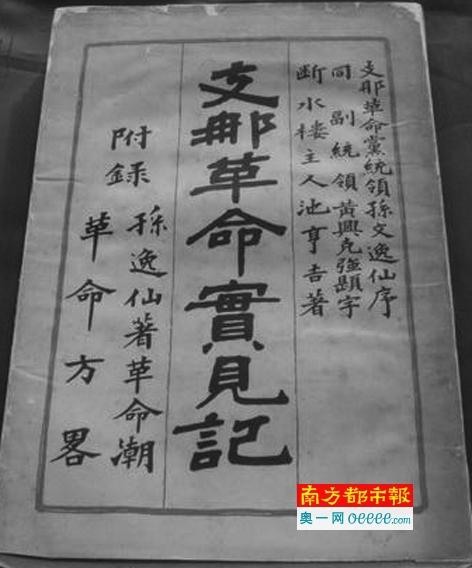 支那革命黨統領孫文逸仙序
同副統領黃興克強題字
断水樓主人池亨吉著
支那革命實見記
附録 孫逸仙著革命潮
革命方畧
南方都市報
奥一网 oeeee.com